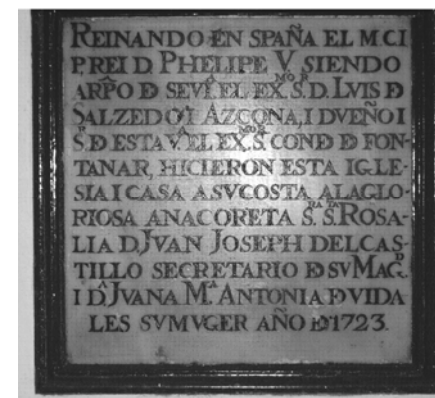 REINANDO EN SPAÑA EL M.CI
P. REI D. PHELIPE V. SIENDO
ARP̂O Đ SEVª. EL EX.ᴹᴼ S.ᴿ D. LVIS Đ
SALZEDO I AZCONA, I DVEÑO I
S.ᴿ Đ ESTA Vª. EL EX.ᴹᴼ S.ᴿ CONĐ Đ FON-
TANAR, HICIERON ESTA IGLE-
SIA I CASA A SV COSTA A LA GLO-
RIOSA ANACORETA S.ᴿᴬ S.ᵀᴬ ROSA-
LIA D. JVAN JOSEPH DEL CAS-
TILLO SECRETARIO Đ SV MAG.ᴰ
I D.ᴬ JVANA M.ᴬ ANTONIA Đ VIDA
LES SV MVGER AÑO Đ 1723.